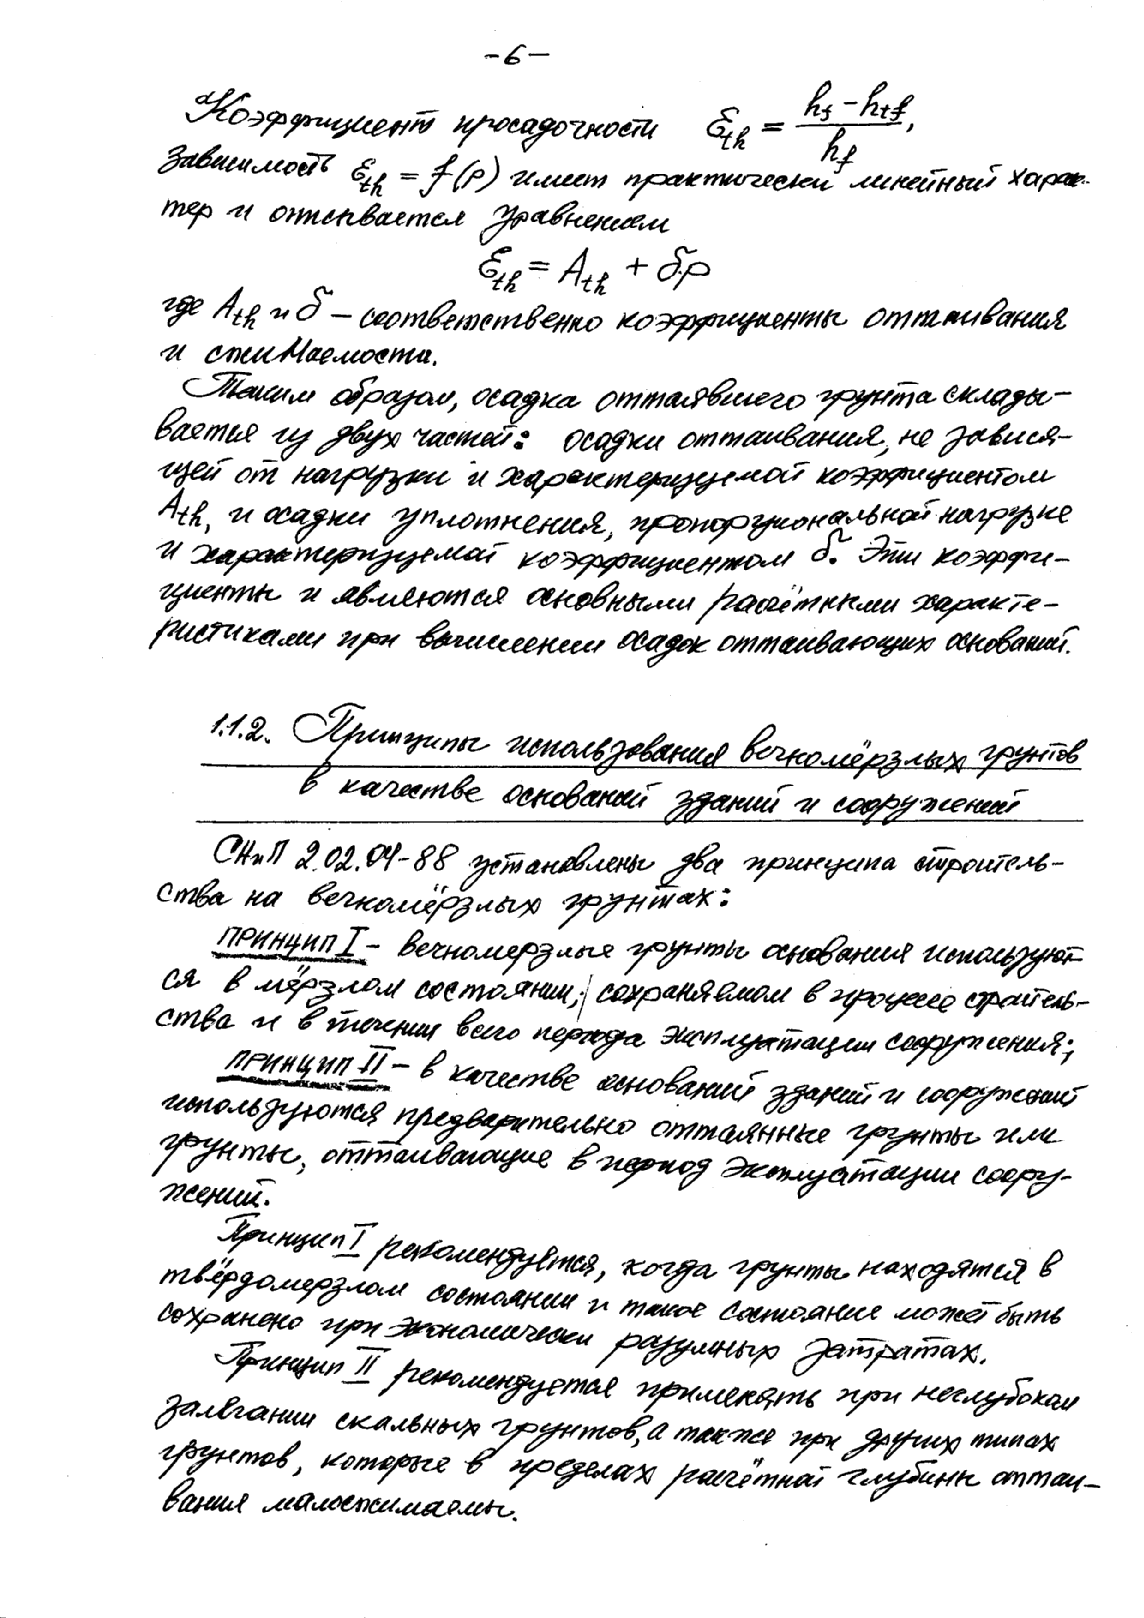 -6-
Коэффициент просадочности ℰth = (hf - htf)/hf,
зависимость ℰth = f(p) имеет практически линейный харак-
тер и описывается уравнением
ℰth = Ath + δp
где Ath и δ – соответственно коэффициенты оттаивания
и сжимаемости.
Таким образом, осадка оттаявшего грунта склады-
вается из двух частей: осадки оттаивания, не завися-
щей от нагрузки и характеризуемой коэффициентом
Ath, и осадки уплотнения, пропорциональной нагрузке
и характеризуемой коэффициентом δ. Эти коэффи-
циенты и являются основными расчётными характе-
ристиками при вычислении осадок оттаивающих оснований.
1.1.2. Принципы использования вечномёрзлых грунтов
в качестве оснований зданий и сооружений
СНиП 2.02.04-88 установлены два принципа строитель-
ства на вечномёрзлых грунтах:
ПРИНЦИП I – вечномерзлые грунты основания используют-
ся в мёрзлом состоянии, сохраняемом в процессе строитель-
ства и в течении всего периода эксплуатации сооружения;
ПРИНЦИП II – в качестве оснований зданий и сооружений
используются предварительно оттаянные грунты или
грунты, оттаивающие в период эксплуатации соору-
жений.
Принцип I рекомендуется, когда грунты находятся в
твёрдомерзлом состоянии и такое состояние может быть
сохранено при экономически разумных затратах.
Принцип II рекомендуется применять при неглубоком
залегании скальных грунтов, а также при других типах
грунтов, которые в пределах расчётной глубины оттаи-
вания малосжимаемы.